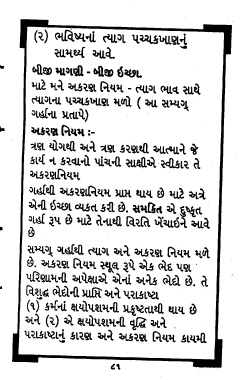 (૨) ભવિષ્યનાં ત્યાગ પચ્ચકખાણનું
સામર્થ્ય આવે.
બીજી માગણી - બીજી ઇચ્છા.
માટે મને અકરણ નિયમ - ત્યાગ ભાવ સાથે
ત્યાગના પચ્ચકખાણ મળો ( આ સમ્યગ્
ગર્હાના પ્રતાપે)
અકરણ નિયમ :-
ત્રણ યોગથી અને ત્રણ કરણથી આત્માને જે
કાર્ય ન કરવાનો પાંચની સાક્ષીએ સ્વીકાર તે
અકરણનિયમ
ગર્હાથી અકરણનિયમ પ્રાપ્ત થાય છે માટે અત્રે
એની ઇચ્છા વ્યકત કરી છે. સમકિત એ દુષ્કૃત
ગર્હા રૂપ છે માટે તેનાથી વિરતિ ખેંચાઇને આવે
છે
સમ્યગ્ ગર્હાથી ત્યાગ અને અકરણ નિયમ મળે
છે. અકરણ નિયમ સ્થૂલ રૂપે એક ભેદ પણ
પરિણામની અપેક્ષાએ એનાં અનેક ભેદો છે. તે
વિશુદ્ધ ભેદોની પ્રાપ્તિ અને પરાકાષ્ટા
(૧) કર્મનાં ક્ષયોપશમની પ્રકૃષ્ટતાથી થાય છે
અને (૨) એ ક્ષયોપશમની વૃદ્ધિ અને
પરાકાષ્ટાનું કારણ અને અકરણ નિયમ કાયમી
૮૧